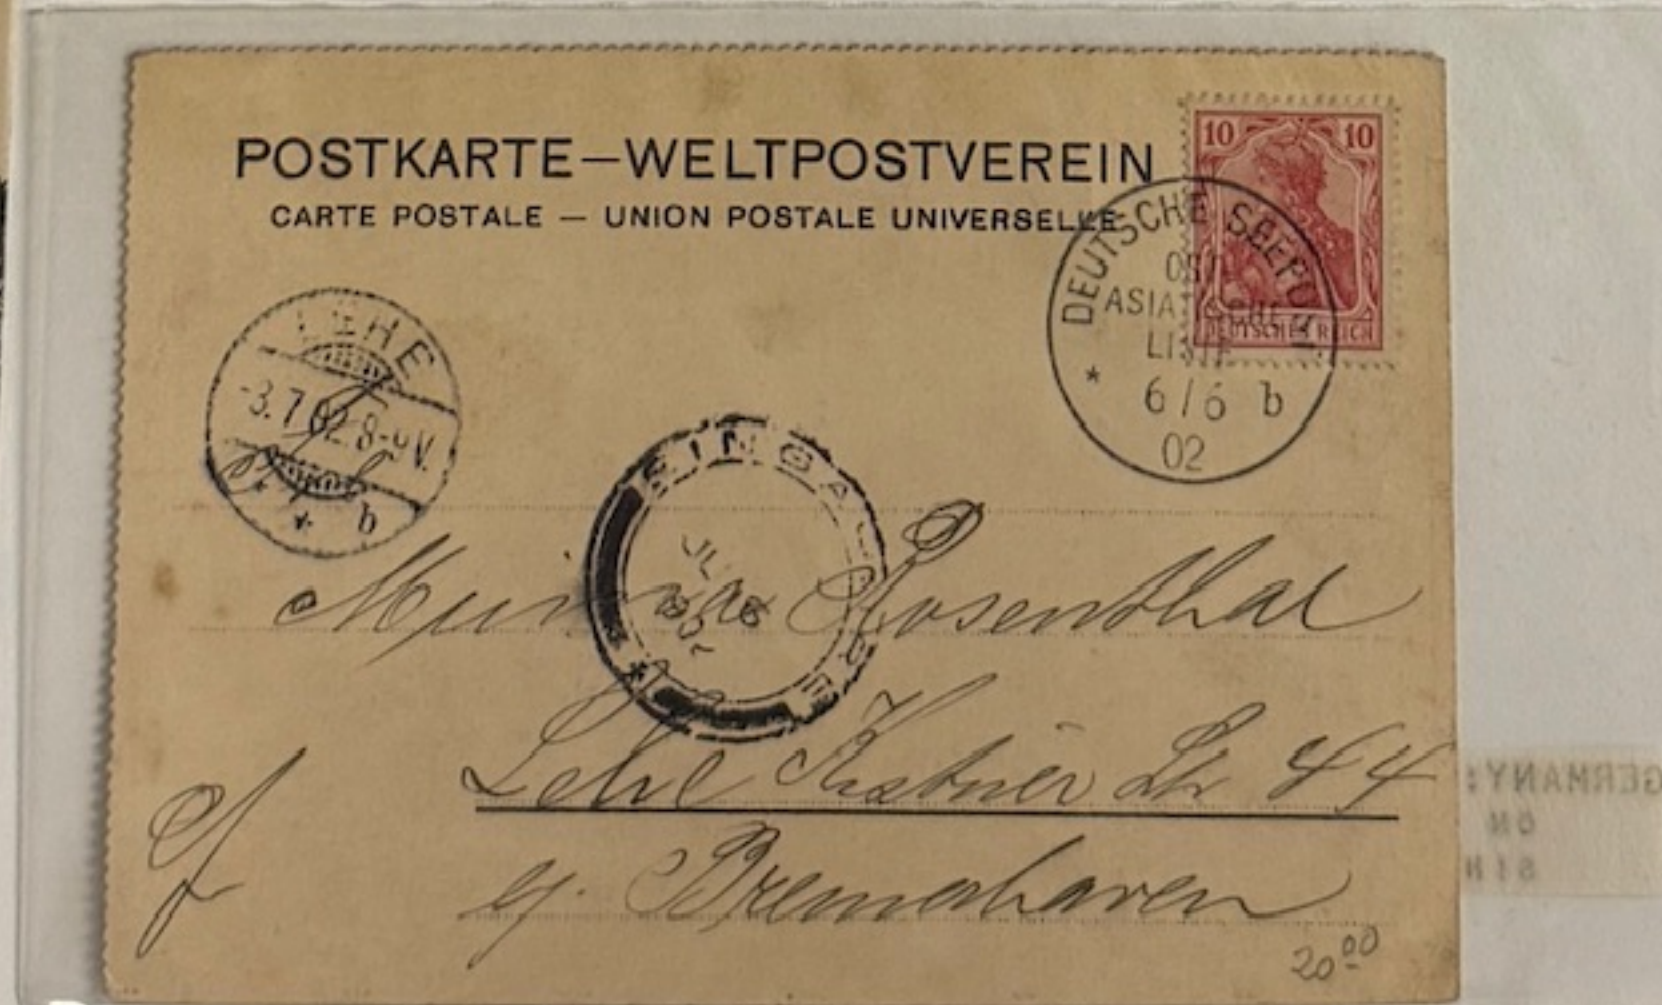 POSTKARTE—WELTPOSTVEREIN
CARTE POSTALE — UNION POSTALE UNIVERSELLE
10 10
DEUTSCHES REICH
DEUTSCHE SEEPOST
OST
ASIATISCHE
LINIE
* 6/6 b
02
LEHE
-3.7.02.8-9V.
* b
SINGAPORE
Rosenthal
Lehe
Str 44
Bremerhaven
20 00
GERMANY:
ON